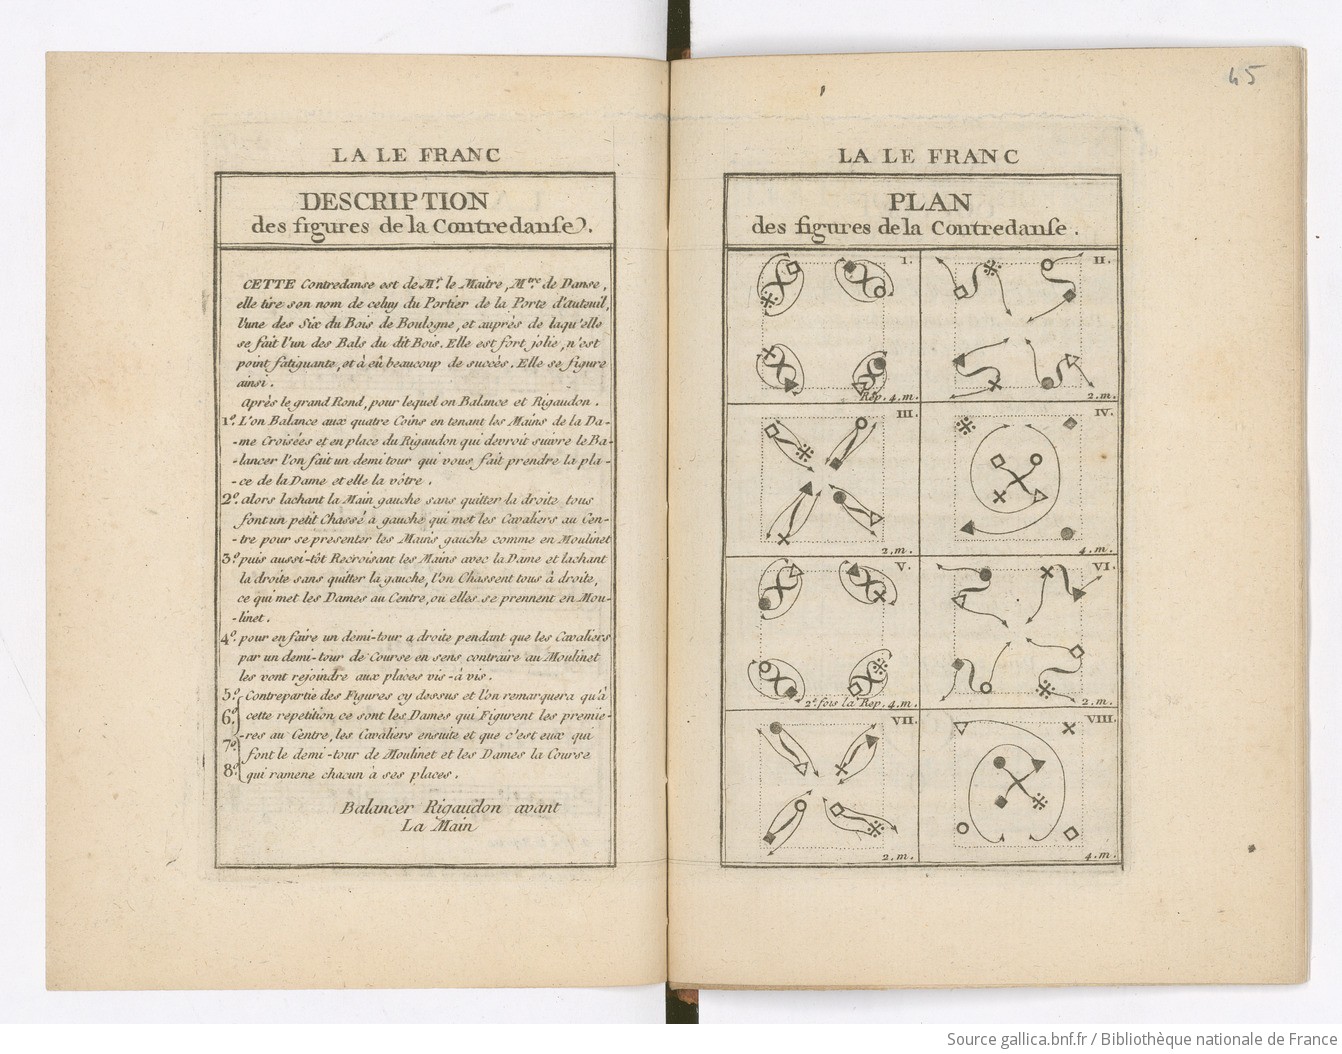 45
LA LE FRANC
DESCRIPTION
des figures de la Contredanse.
CETTE Contredanse est de Mr. le Maitre, Mtre. de Danse,
elle tire son nom de celuy du Portier de la Porte d'auteuil,
l'une des Six du Bois de Boulogne, et auprès de laqu'elle
se fait l'un des Bals du dit Bois. Elle est fort jolie, n'est
point fatiguante, et à eû beaucoup de succès. Elle se figure
ainsi.
Après le grand Rond, pour lequel on Balance et Rigaudon.
1º. L'on Balance aux quatre Coins en tenant les Mains de la Da-
-me Croisées et en place du Rigaudon qui devroit suivre le Ba-
-lancer l'on fait un demi tour qui vous fait prendre la pla-
-ce de la Dame et elle la vôtre.
2º. alors lachant la Main gauche sans quitter la droite tous
font un petit Chassé a gauche qui met les Cavaliers au Cen-
-tre pour se presenter les Mains gauche comme en Moulinet
3º. puis aussi-tôt Recroisant les Mains avec la Dame et lachant
la droite sans quitter la gauche, l'on Chassent tous à droite,
ce qui met les Dames au Centre, ou elles se prennent en Mou-
-linet.
4º. pour en faire un demi-tour a droite pendant que les Cavaliers
par un demi-tour de Course en sens contraire au Moulinet
les vont rejoindre aux places vis-à vis.
5º. Contrepartie des Figures cy dessus et l'on remarquera qu'à
6º. cette repetition ce sont les Dames qui Figurent les premie-
7º. -res au Centre, les Cavaliers ensuite et que c'est eux qui
font le demi-tour de Moulinet et les Dames la Course
8º. qui ramene chacun à ses places.
Balancer Rigaudon avant
La Main
LA LE FRANC
PLAN
des figures de la Contredanse.
I.
Rep. 4. m.
II.
2. m.
III.
2. m.
IV.
4. m.
V.
2e. fois la Rep. 4. m.
VI.
2. m.
VII.
2. m.
VIII.
4. m.
Source gallica.bnf.fr / Bibliothèque nationale de France